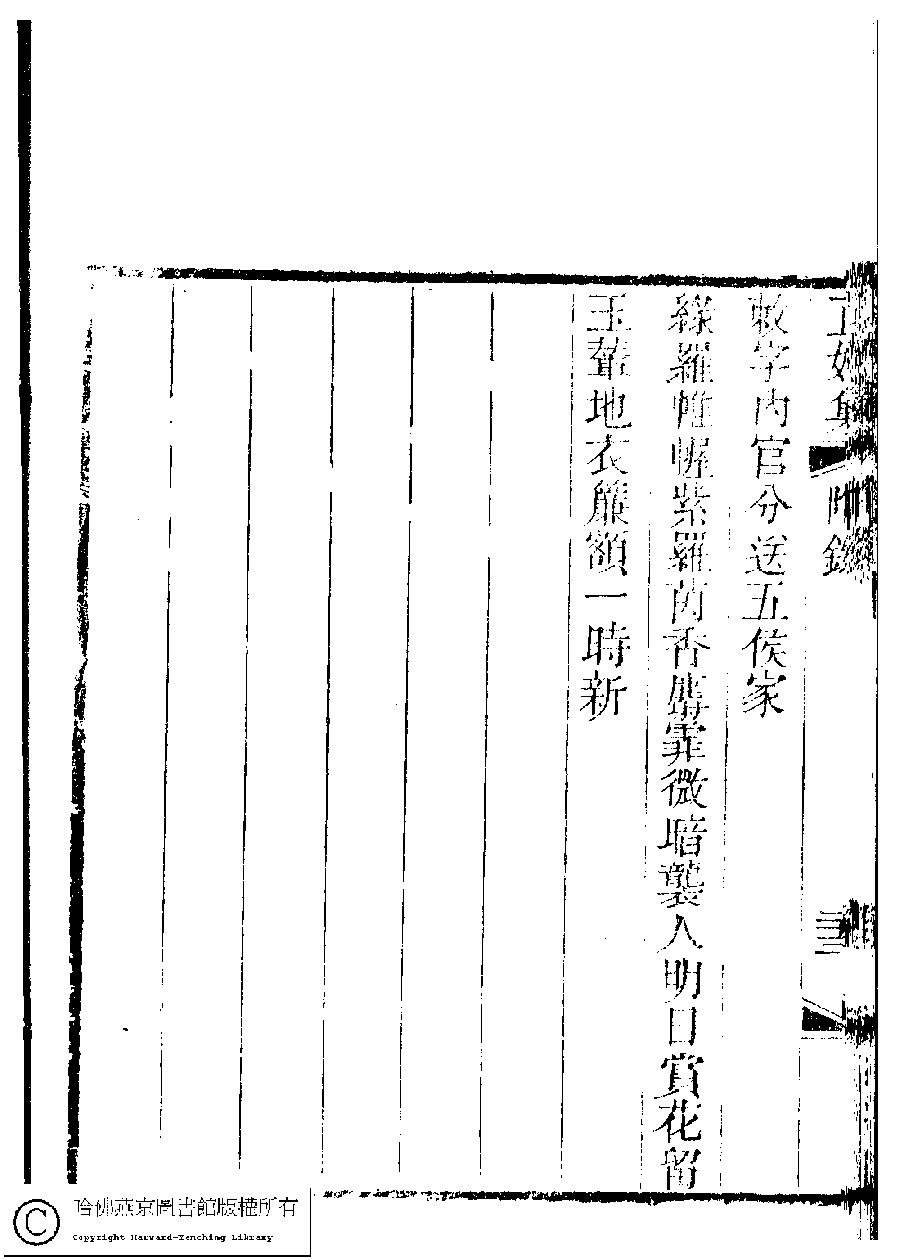 附錄
三
敕字内官分送五侯家
綠羅帷幄紫羅茵香麝霏微暗襲人明日賞花留
玉輦地衣簾額一時新
哈佛燕京圖書館版權所有
Copyright Harvard-Yenching Library